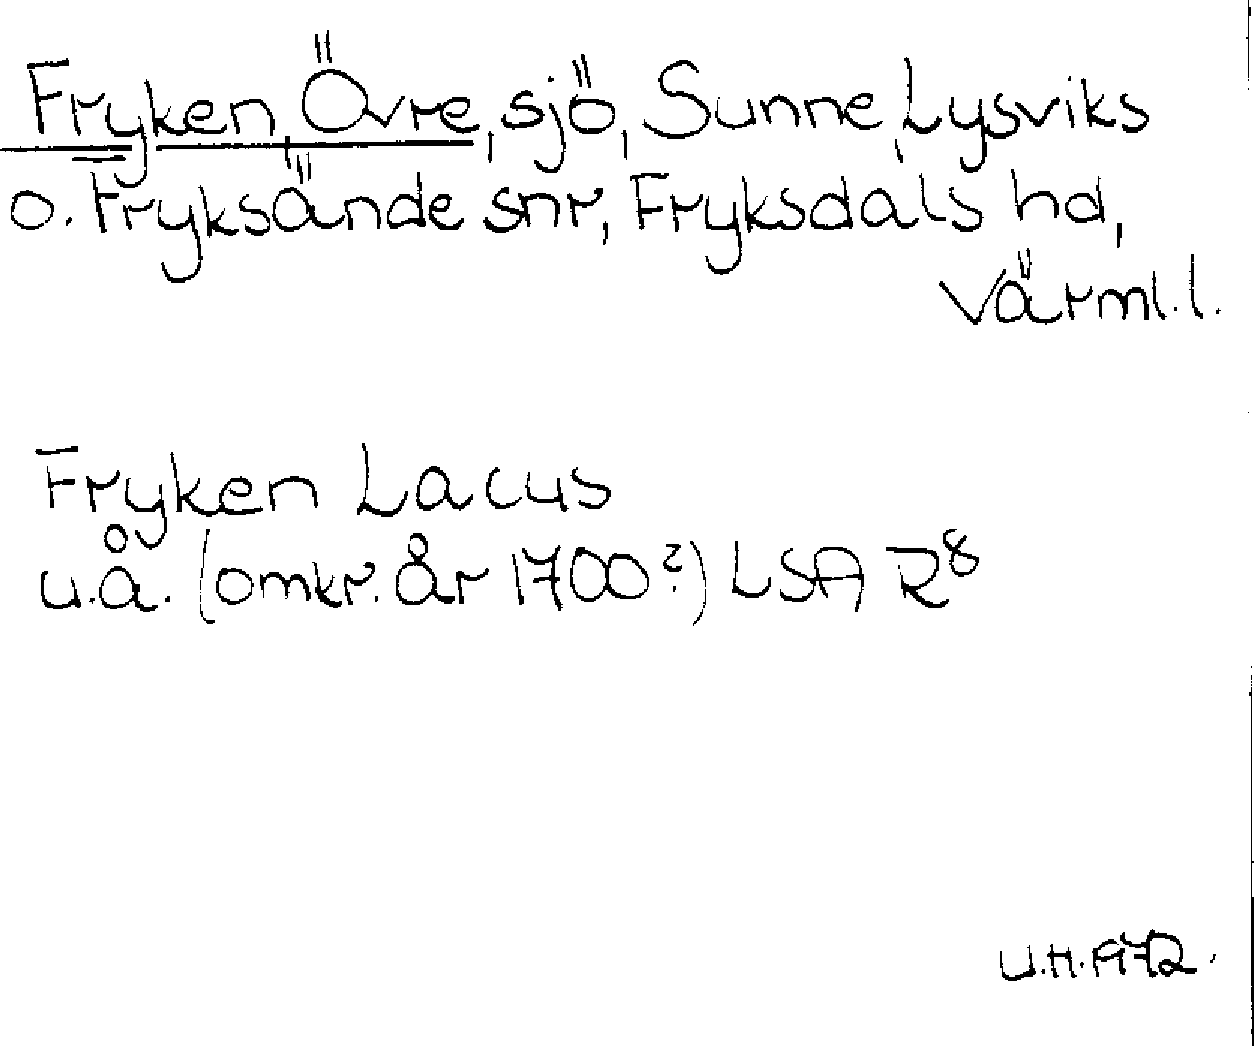 Fryken, Övre, sjö, Sunne, Lysviks
o. Fryksände snr, Fryksdals hd,
Värml. l.
Fryken Lacus
u.å. (omkr. år 1700?) LSA R8
U.H. 1972.